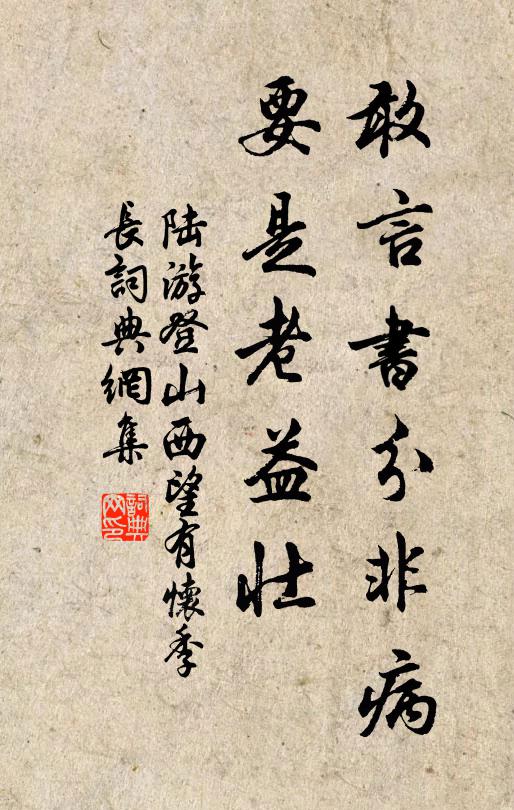 敢言書分非病
要是老益壯
陸游登山西望有懷季
長詞典網集
詞典
网印